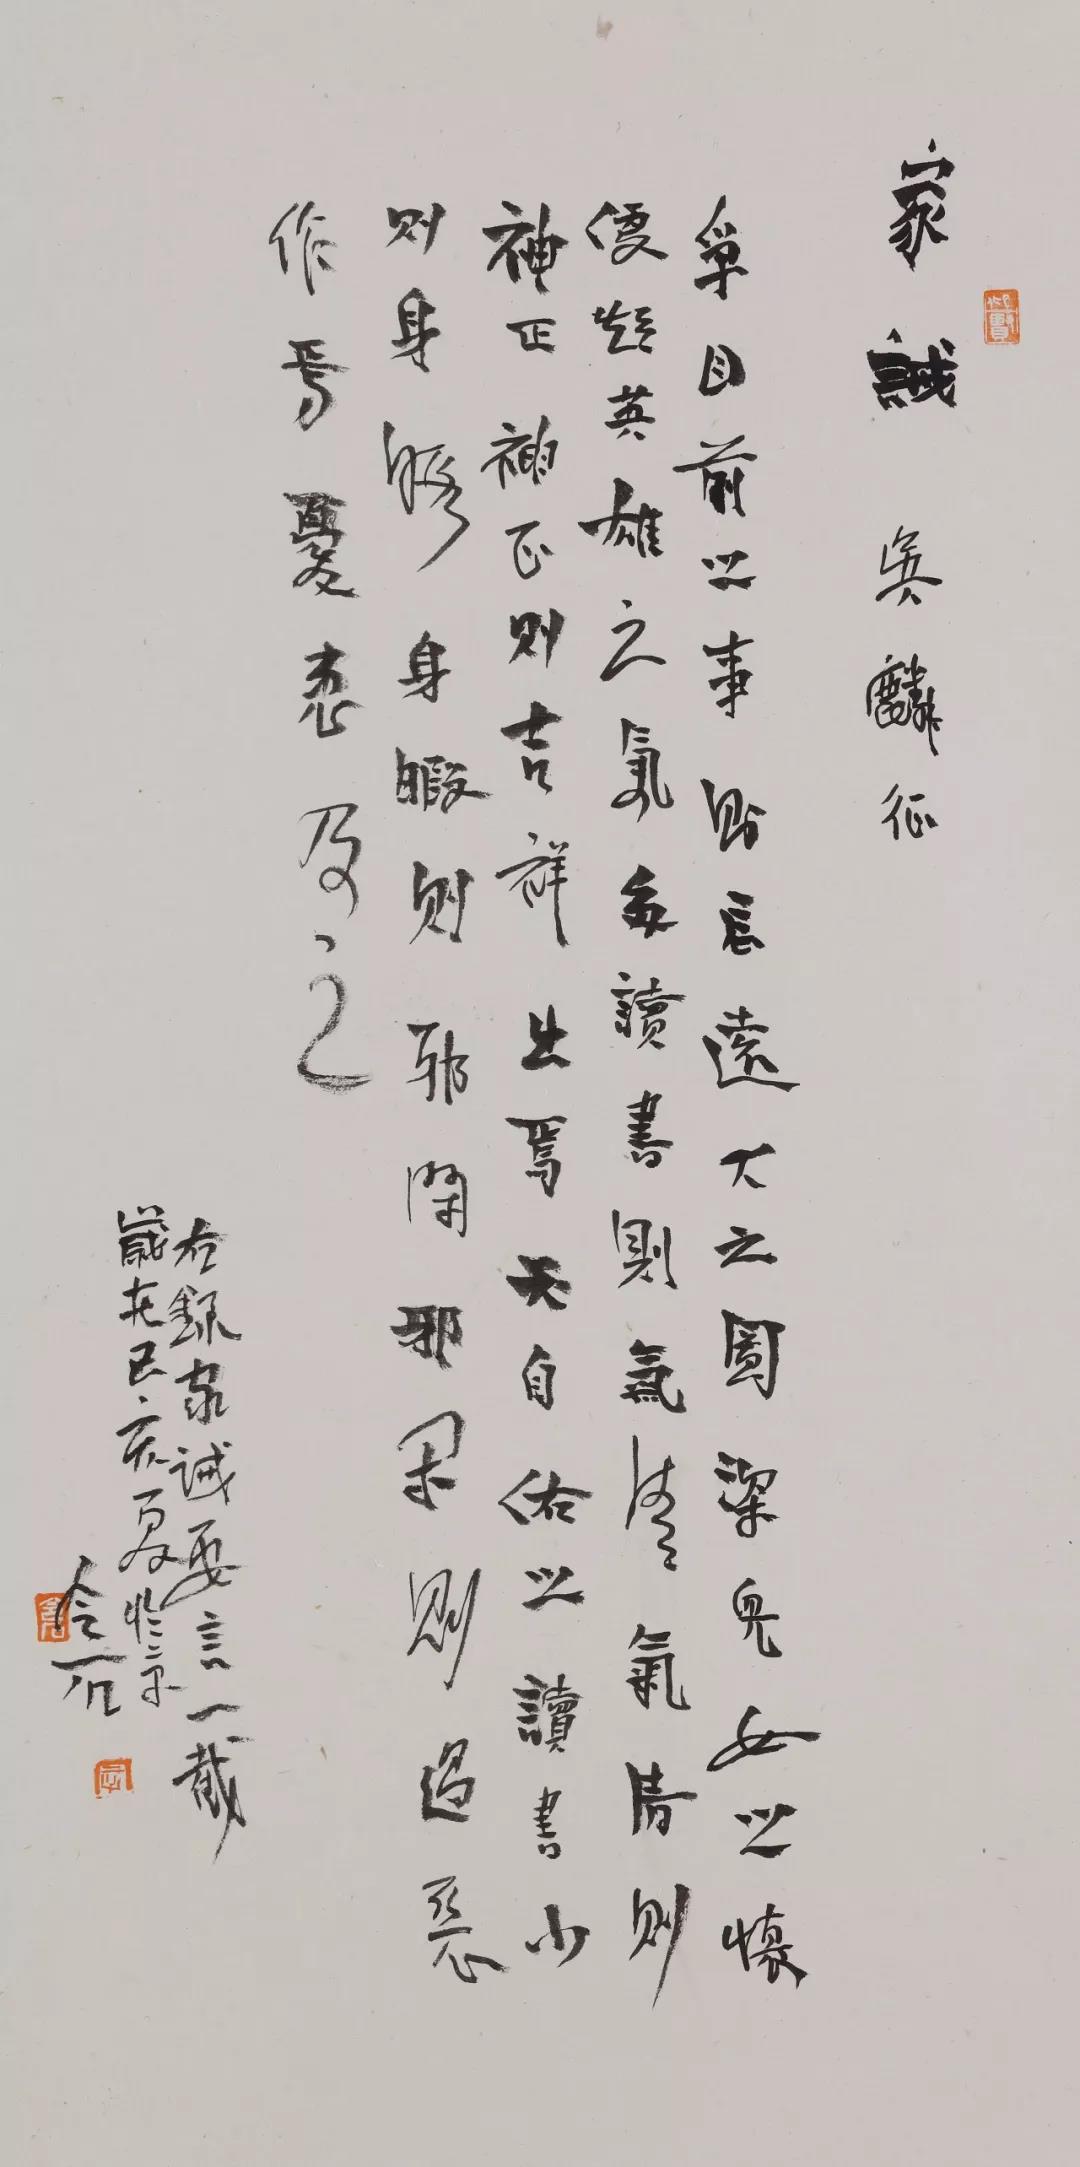 家誡 吳麟征
爭目前之事則忘遠大之圖深兒女之懷
便短英雄之氣多讀書則氣清氣清則
神正神正則吉祥出焉天自佑之讀書少
則身暇身暇則邪間邪間則過惡
作焉憂患及之
右錄家誡要言一截
歲在己亥夏於京